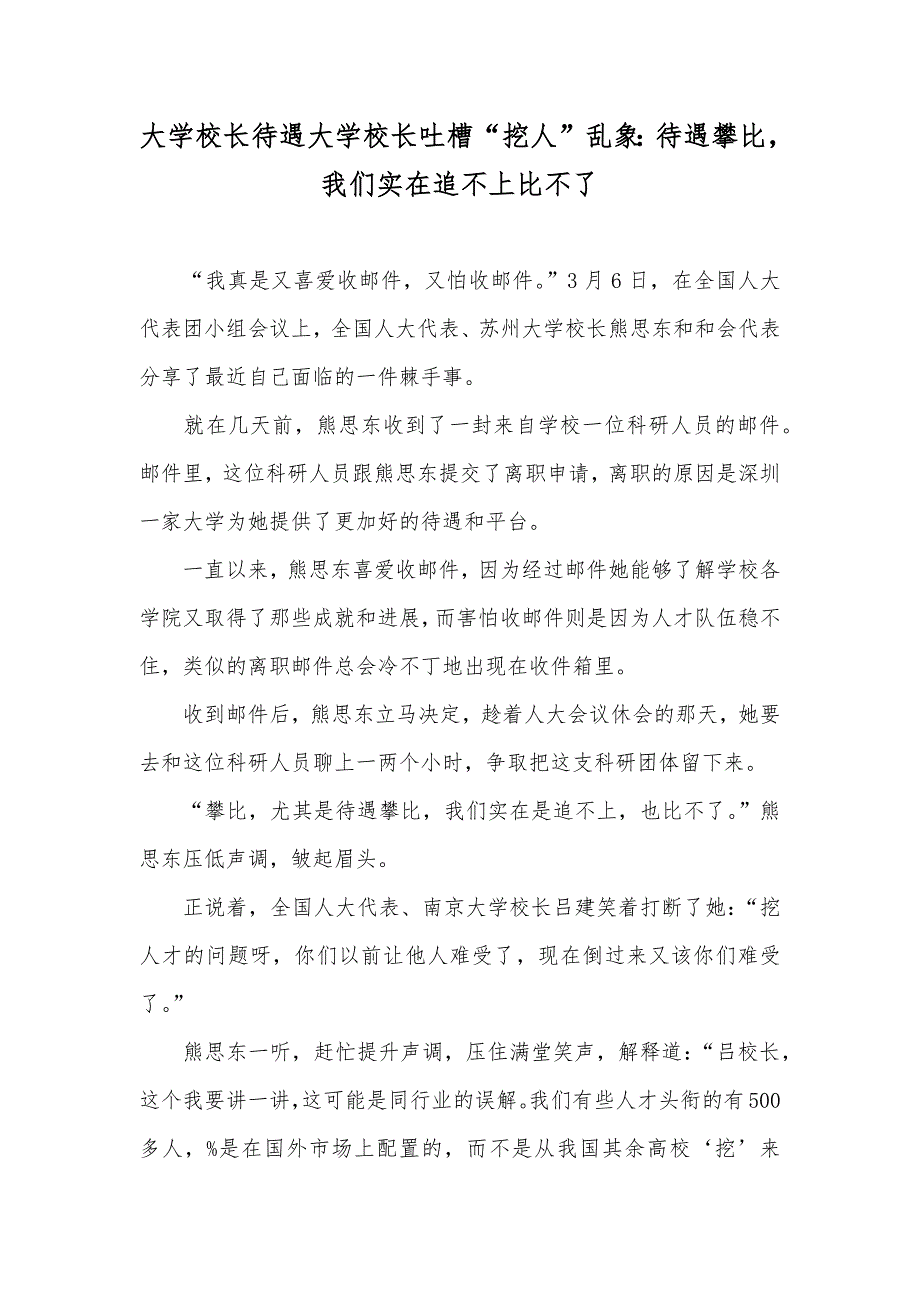 大学校长待遇大学校长吐槽“挖人”乱象：待遇攀比，
我们实在追不上比不了
“我真是又喜爱收邮件，又怕收邮件。”3 月 6 日，在全国人大
代表团小组会议上，全国人大代表、苏州大学校长熊思东和和会代表
分享了最近自己面临的一件棘手事。
就在几天前，熊思东收到了一封来自学校一位科研人员的邮件。
邮件里，这位科研人员跟熊思东提交了离职申请，离职的原因是深圳
一家大学为她提供了更加好的待遇和平台。
一直以来，熊思东喜爱收邮件，因为经过邮件她能够了解学校各
学院又取得了那些成就和进展，而害怕收邮件则是因为人才队伍稳不
住，类似的离职邮件总会冷不丁地出现在收件箱里。
收到邮件后，熊思东立马决定，趁着人大会议休会的那天，她要
去和这位科研人员聊上一两个小时，争取把这支科研团体留下来。
“攀比，尤其是待遇攀比，我们实在是追不上，也比不了。”熊
思东压低声调，皱起眉头。
正说着，全国人大代表、南京大学校长吕建笑着打断了她：“挖
人才的问题呀，你们以前让他人难受了，现在倒过来又该你们难受
了。”
熊思东一听，赶忙提升声调，压住满堂笑声，解释道：“吕校长，
这个我要讲一讲，这可能是同行业的误解。我们有些人才头衔的有 500
多人，%是在国外市场上配置的，而不是从我国其余高校‘挖’来